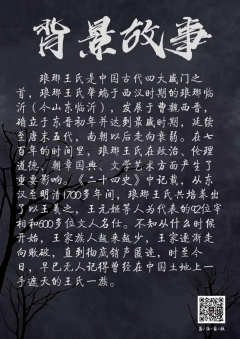 背景故事
琅琊王氏是中国古代四大盛门之
首，琅琊王氏肇端于西汉时期的琅琊临
沂（今山东临沂），发展于曹魏西晋，
确立于东晋初年并达到鼎盛时期，延续
至唐末五代，南朝以后走向衰弱。在七
百年的时间里，琅琊王氏在政治、伦理
道德、朝章国典、文学艺术方面产生了
重要影响，《二十四史》中记载，从东
汉至明清1700多年间，琅琊王氏共培养出
了以王羲之、王元姬等人为代表的92位宰
相和600多位文人名仕。不知从什么时候
开始，王家族人越来越少，王家逐渐走
向败破，直到彻底销声匿迹，时至今
日，早已无人记得曾经在中国土地上一
手遮天的王氏一族。